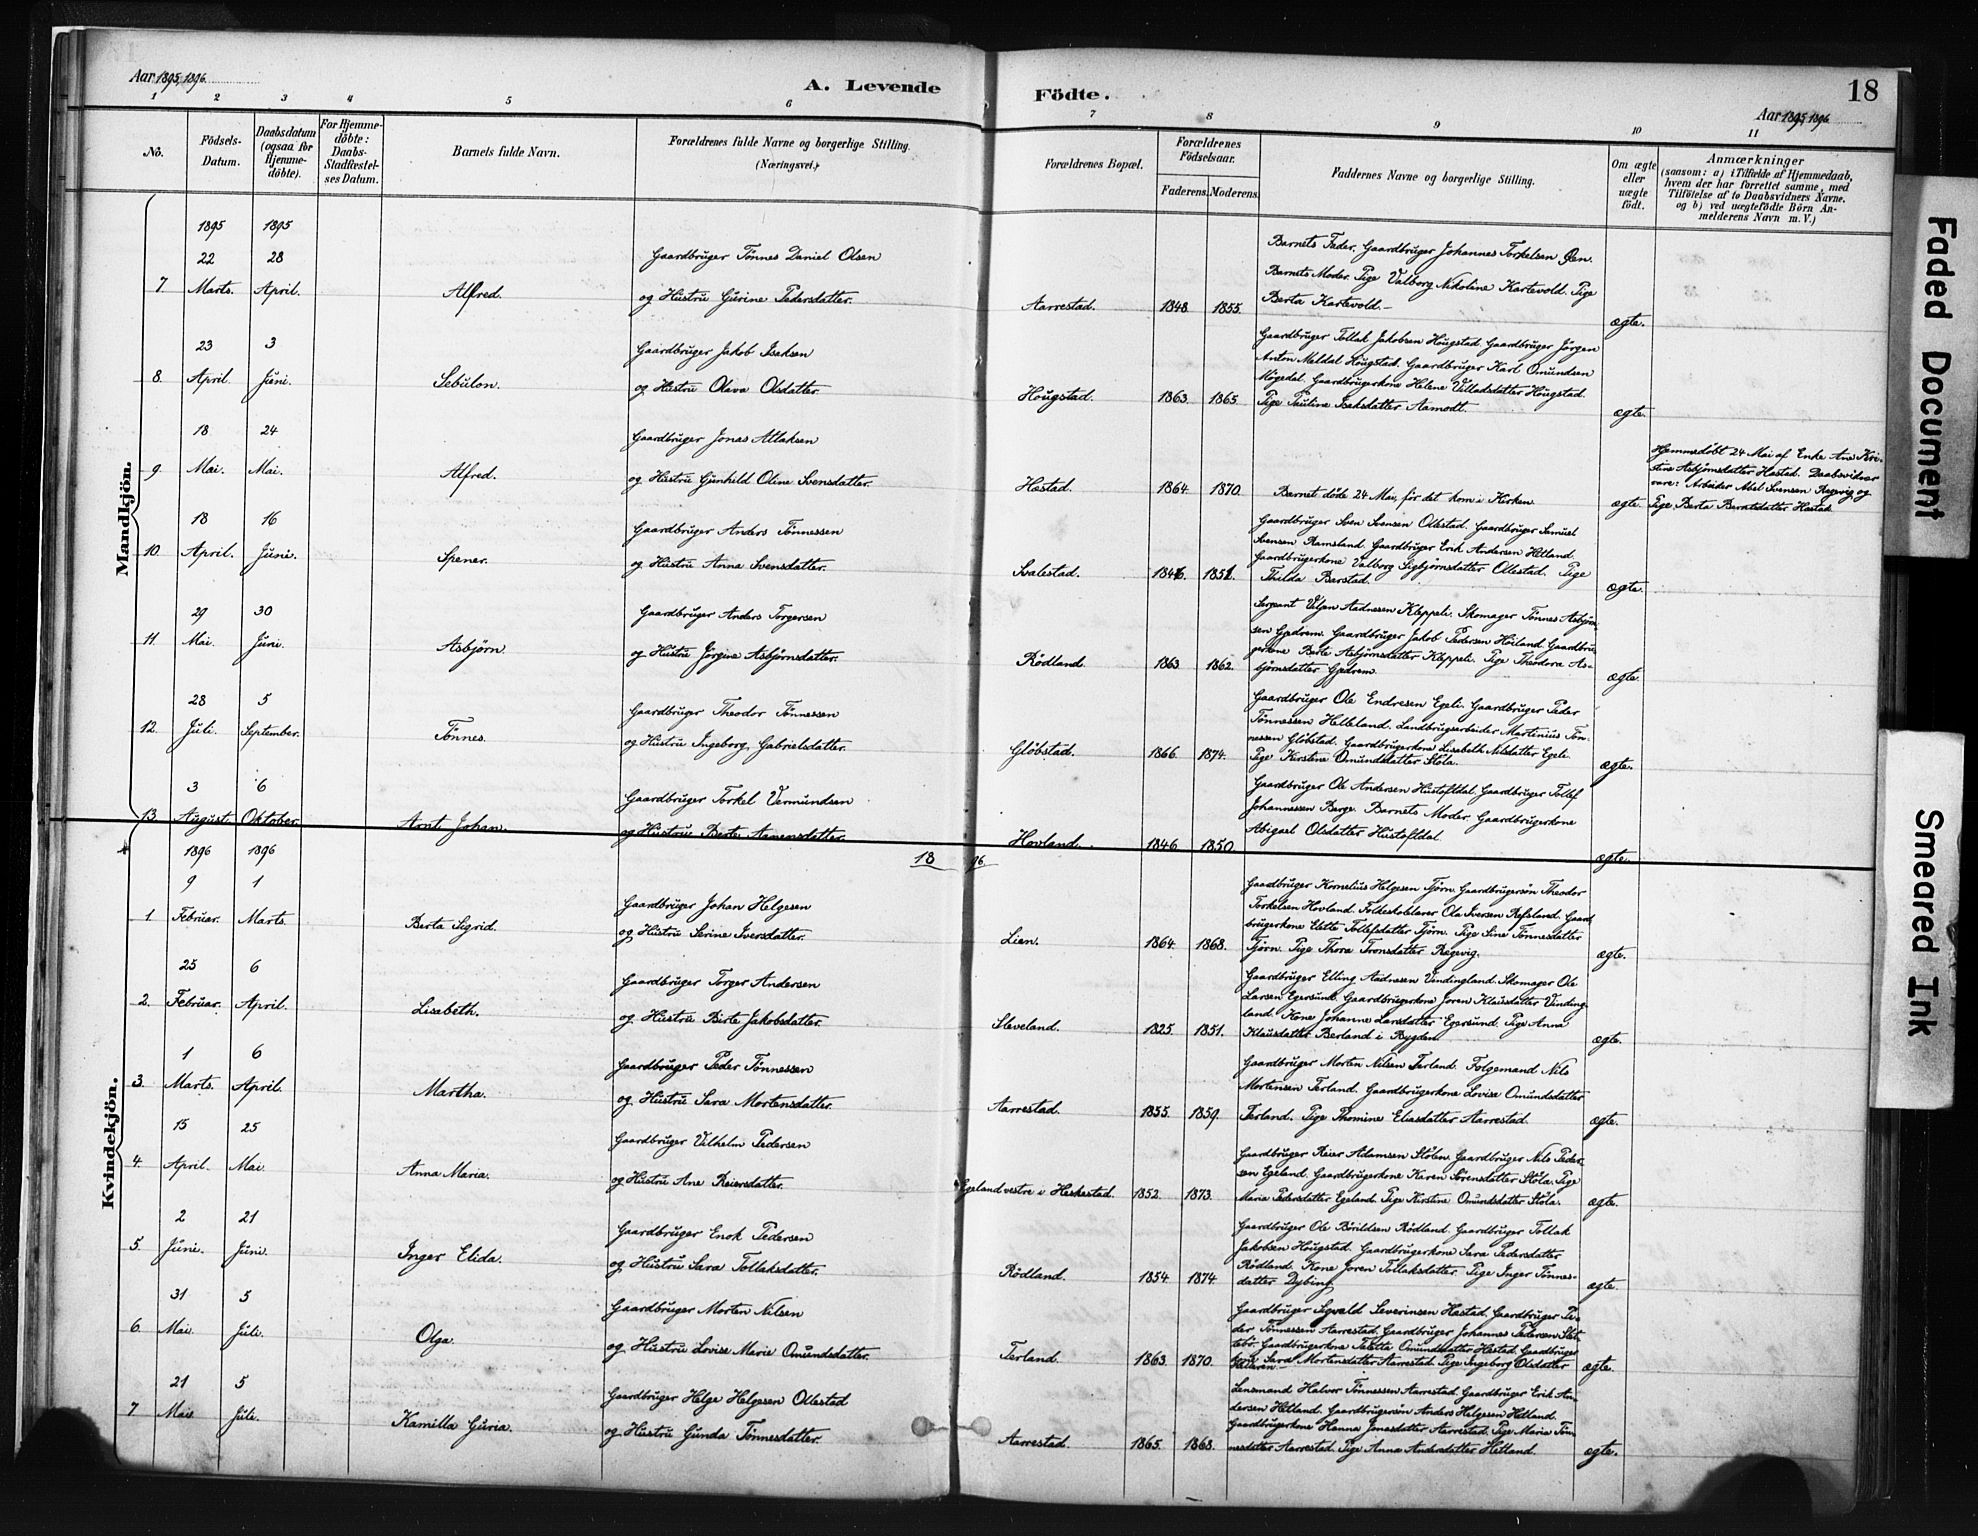 Aar 1895, 1896.
A. Levende Födte.
18
Aar 1895, 1896.
1 2 3 4 5 6 7 8 9 10 11
No.
Födsels-Datum.
Daabsdatum (ogsaa for Hjemme-döbte).
For Hjemme-döbte: Daabs-Stadfæstel-ses Datum.
Barnets fulde Navn.
Forældrenes fulde Navne og borgerlige Stilling. (Næringsvei.)
Forældrenes Bopæl.
Forældrenes Födselsaar.
Faderens. Moderens.
Faddernes Navne og borgerlige Stilling.
Om ægte eller uægte født.
Anmærkninger
(saasom: a) i Tilfælde af Hjemmedaab,
hvem der har forrettet samme, med
Tilföielse af to Daabsvidners Navne.
og b) ved uægtefödte Börn An-
melderens Navn m. V.)
Mandkjön.
1895 1895
22 28 Gaardbruger Tønnes Daniel Olsen
7 Marts. April. Alfred. og Hustru Gurine Pedersdatter. Aarrestad. 1848. 1855. ægte.
Barnets Fader. Gaardbruger Johannes Torkelsen Øen.
Barnets Moder. Pige Valborg Nikoline Kartevold. Pige
Berta Kartevold.
23 3 Gaardbruger Jakob Isaksen
8. April. Juni. Sebulon. og Hustru Olava Olsdatter. Hougstad. 1863. 1865. ægte.
Gaardbruger Tollak Jakobsen Hougstad. Gaardbruger Jørgen
Anton Meldal Hougstad. Gaardbruger Karl Omundsen
Møgedal. Gaardbrugerkone Helene Villadsdatter Hougstad.
Pige Pauline Isaksdatter Aamodt.
18 24 Gaardbruger Jonas Atlaksen
9 Mai. Mai. Alfred. og Hustru Gunhild Oline Svensdatter. Hæstad. 1864. 1870. ægte.
Barnet døde 24 Mai, før det kom i Kirken.
Hjemmedøbt 24 Mai af Enke Ane Kri-
stine Asbjørnsdatter Hæstad. Daabsvidner
vare: Arbeider Abel Svensen Rægevig og
Pige Berta Berntsdatter Hæstad.
18 16 Gaardbruger Anders Tønnessen
10. April. Juni. Spener. og Hustru Anna Svensdatter. Svalestad. 1846. 1851. ægte.
Gaardbruger Sven Svansen Ollestad. Gaardbruger Samuel
Svensen Ramsland. Gaardbruger Erik Andersen Hetland.
Gaardbrugerkone Valborg Sigbjørnsdatter Ollestad. Pige
Thilda Barstad.
29 30 Gaardbruger Anders Torgersen
11. Mai. Juni. Asbjørn og Hustru Jørgine Asbjørnsdatter. Rødland. 1863 1862. ægte.
Sergeant Viljen Aadnesen Kleppeli. Skomager Tønnes Asbjørn-
sen Gjedrem. Gaardbruger Jakob Pedersen Høiland. Gaardbru-
gerkone Berte Asbjørnsdatter Kleppeli. Pige Theodora As-
bjørnsdatter Gjedrem.
28 5 Gaardbruger Theodor Tønnessen
12. Juli. September. Tønnes. og Hustru Ingeborg Gabrielsdatter. Gløbstad. 1866. 1874. ægte.
Gaardbruger Ole Endresen Egeli. Gaardbruger Peder
Tønnessen Helleland. Landbrugsarbeider Martinius Tøn-
nessen Gløbstad. Gaardbrugerkone Lisabeth Nilsdatter Egeli.
Pige Kirstine Omundsdatter Støla.
3 6 Gaardbruger Torkel Vermundsen
13. August. Oktober. Arnt Johan. og Hustru Berte Aanensdatter. Hovland. 1846 1850. ægte.
Gaardbruger Ole Andersen Hustoftdal. Gaardbruger Tollef
Johannessen Berge. Barnets Moder. Gaardbrugerkone
Abigael Olsdatter Hustoftdal.
1896
Kvindekjön.
1896 1896
9 1 Gaardbruger Johan Helgesen
1. Februar. Marts. Berta Sigrid. og Hustru Serine Iversdatter. Lien. 1864. 1868. ægte.
Gaardbruger Kornelius Helgesen Tjørn. Gaardbrugersøn Theodor
Torkelsen Hovland. Folkeskolelærer Ola Iversen Refsland. Gaard-
brugerkone Tollefsdatter Tjørn. Pige Sine Tønnesdatter
Tjørn. Pige Thora Tronsdatter Rægevig.
25 6 Gaardbruger Torger Andersen
2. Februar. April. Lisabeth. og Hustru Birte Jakobsdatter. Sleveland. 1825. 1851. ægte.
Gaardbruger Elling Aadnesen Vindingland. Skomager Ole
Larsen Egersund. Gaardbrugerkone Joren Klausdatter Vinding-
land. Kone Johanne Larsdatter Egersund. Pige Anna
Klausdatter Berland i Bygden.
1 6 Gaardbruger Peder Tønnessen
3. Marts. April. Martha. og Hustru Sara Mortensdatter. Aarrestad. 1855. 1859. ægte.
Gaardbruger Morten Nilsen Terland. Folgemand Nils
Mortensen Terland. Gaardbrugerkone Lovise Omundsdatter
Terland. Pige Thomine Eliasdatter Aarrestad.
15 25 Gaardbruger Vilhelm Pedersen
4. April. Mai. Anna Maria. og Hustru Ane Reiersdatter. Egeland vestre i Heskestad. 1852. 1873. ægte.
Gaardbruger Reier Adamsen Stölen. Gaardbruger Nils Peder-
sen Egeland. Gaardbrugerkone Karen Sørensdatter Støla. Pige
Maria Pedersdatter Egeland. Pige Kirstine Omundsdatter Støla.
2 21 Gaardbruger Enok Pedersen
5. Juni. Juni. Inger Elida. og Hustru Sara Tollaksdatter. Rødland. 1854. 1874. ægte.
Gaardbruger Ole Bårildsen Rødland. Gaardbruger Tollak
Jakobsen Hougstad. Gaardbrugerkone Sara Pedersdatter
Rødland. Kone Joren Tollaksdatter. Pige Inger Tønnes-
datter Dybing
31 5 Gaardbruger Morten Nilsen
6. Mai. Juli. Olga. og Hustru Lovise Marie Omundsdatter. Terland. 1863. 1870. ægte.
Gaardbruger Sigvald Severinsen Hæstad. Gaardbruger Pe-
der Tønnessen Aarrestad. Gaardbruger Johannes Pedersen Slet-
tebø. Gaardbrugerkone Saletta Omundsdatter Hæstad. Gaardbruger-
kone Sara Mortensdatter Aarrestad. Pige Ingeborg Olsdatter
21 5 Gaardbruger Helge Helgesen Ollestad
7 Mai. Juli. Kamilla Guria. og Hustru Gunda Tønnesdatter. Aarrestad. 1865. 1868. ægte.
Lensmand Halvor Tønnessen Aarrestad. Gaardbruger Erik An-
dersen Hetland. Gaardbrugersøn Anders Helgesen Hetland.
Gaardbrugerkone Hanna Jonasdatter Aarrestad. Pige Maria Tøn-
nesdatter Aarrestad. Pige Anna Andersdatter Hetland.
Faded Document
Smeared Ink